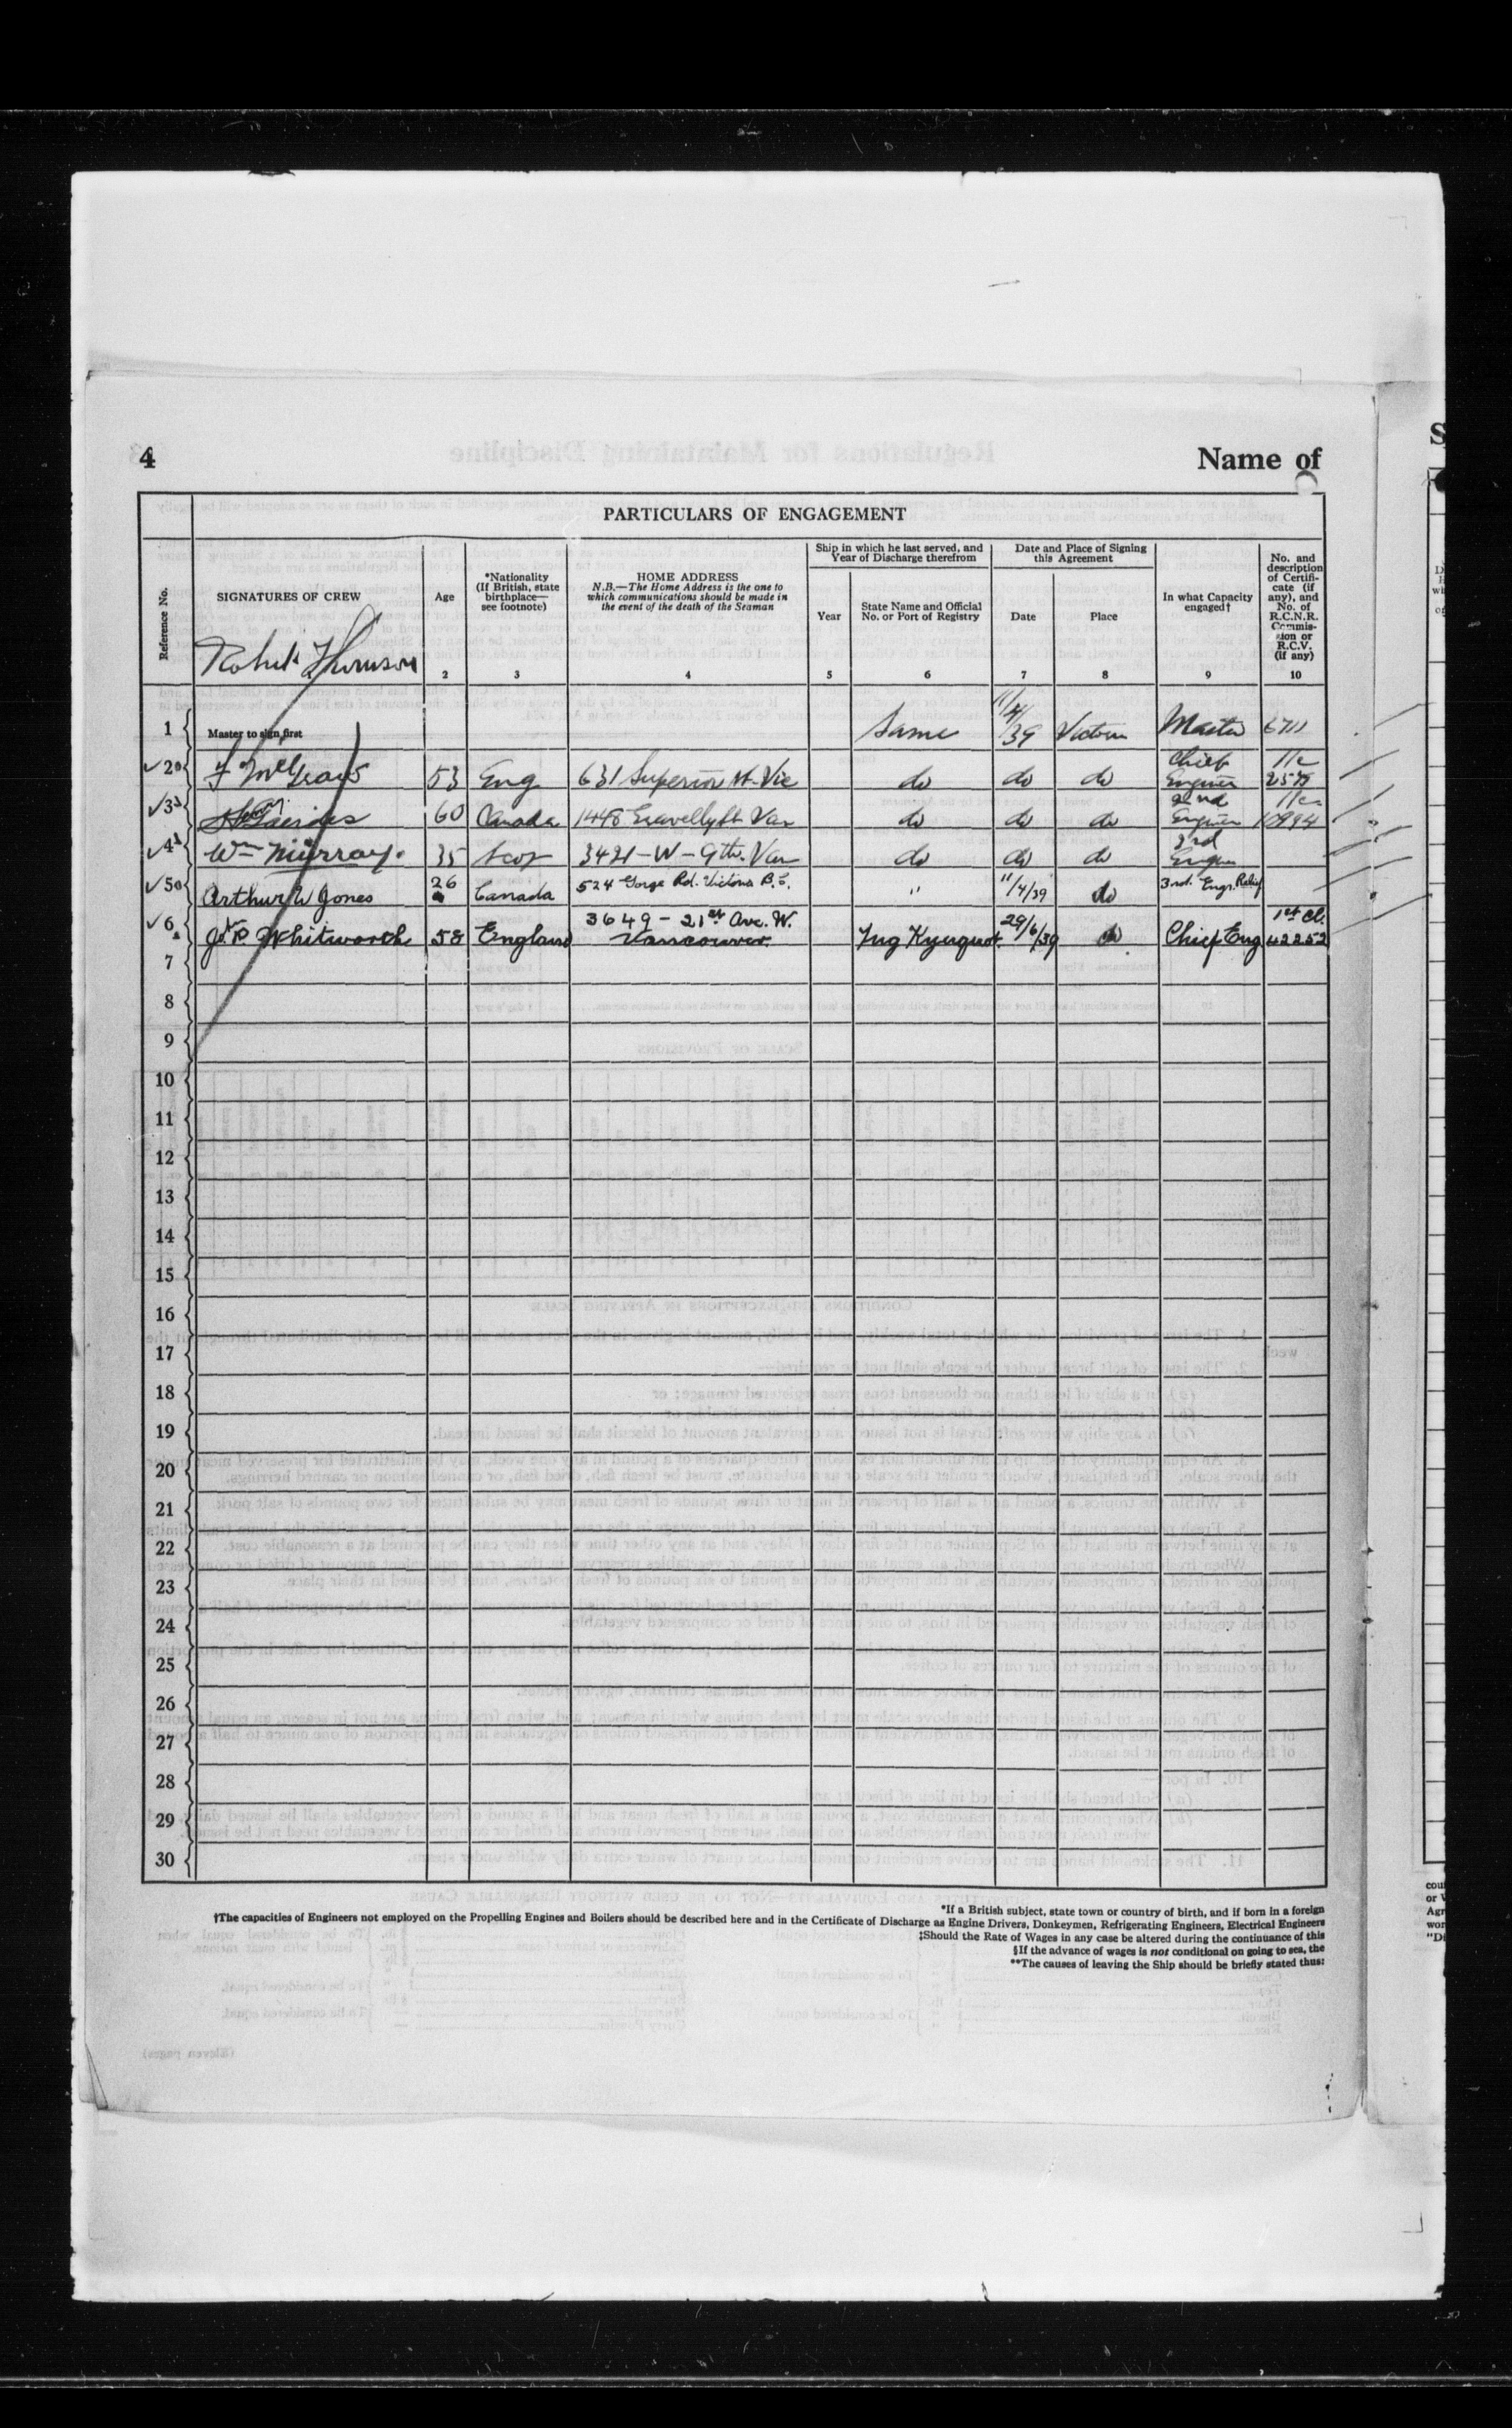 4
Name of
PARTICULARS OF ENGAGEMENT
Reference No.
SIGNATURES OF CREW
Age
2
*Nationality
(If British, state
birthplace—
see footnote)
3
HOME ADDRESS
N.B.—The Home Address is the one to
which communications should be made in
the event of the death of the Seaman
4
Ship in which he last served, and
Year of Discharge therefrom
Year
5
State Name and Official
No. or Port of Registry
6
Date and Place of Signing
this Agreement
Date
7
Place
8
In what Capacity
engaged†
9
No. and
description
of Certifi-
cate (if
any), and
No. of
R.C.N.R.
Commis-
sion or
R.C.V.
(if any)
10
Robert Thomson
1 Master to sign first Same 11/4/39 Victoria Master 6711
2 53 Eng 631 Superior St. Vic do do do Chief Engineer
3 60 Canada 1448 Gravelly St Van do do do 2nd Engineer 10994
4 Wm Murray. 35 Scot 3421-W-9th. Van do do do 3rd Engineer
5 Arthur W Jones 26 Canada 524 Gorge Rd. Victoria B.C. " 11/4/39 do 3rd. Engr. Relief
6 Whitworth 58 England 3649 - 21st Ave. W.
Vancouver. Tug Kyuquot. 29/6/39 do Chief Eng 1st Cl.
42252
7
8
9
10
11
12
13
14
15
16
17
18
19
20
21
22
23
24
25
26
27
28
29
30
*If a British subject, state town or country of birth, and if born in a foreign
†The capacities of Engineers not employed on the Propelling Engines and Boilers should be described here and in the Certificate of Discharge as Engine Drivers, Donkeymen, Refrigerating Engineers, Electrical Engineers
‡Should the Rate of Wages in any case be altered during the continuance of this
§If the advance of wages is not conditional on going to sea, the
**The causes of leaving the Ship should be briefly stated thus: